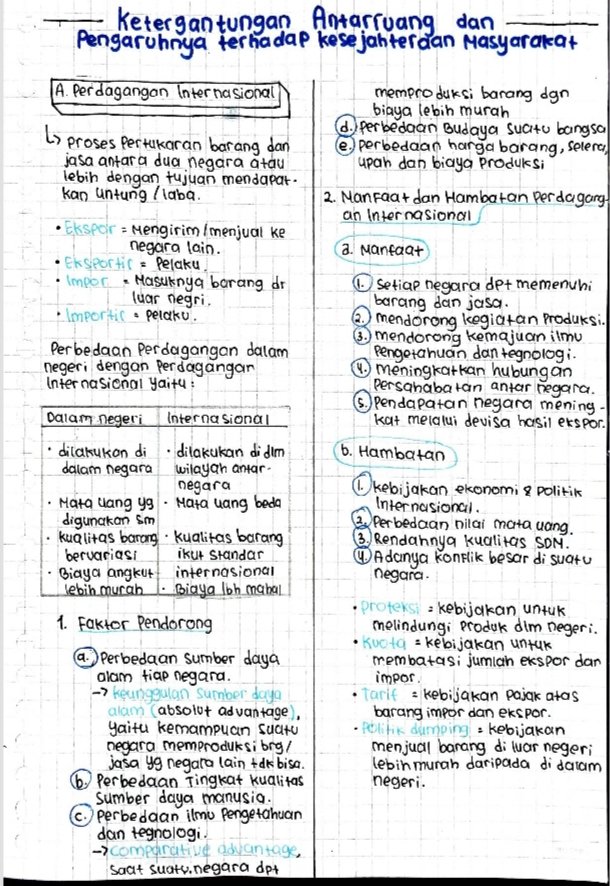 Ketergantungan Antarruang dan
Pengaruhnya terhadap kesejahteraan Masyarakat
A. Perdagangan Internasional
↳ proses Pertukaran barang dan
jasa antara dua negara atau
lebih dengan tujuan mendapat-
kan untung / laba.
• Ekspor = Mengirim/menjual ke
negara lain.
• Eksportir = Pelaku
• Impor = Masuknya barang dr
luar negri.
• Importir = Pelaku.
Perbedaan Perdagangan dalam
negeri dengan Perdagangan
Internasional yaitu :
Dalam negeri | Internasional
• dilakukan di | • dilakukan di dlm
dalam negara | wilayah antar-
negara
• Mata uang yg | • Mata uang beda
digunakan sm
• kualitas barang | • kualitas barang
bervariasi | ikut standar
• Biaya angkut | internasional
lebih murah | • Biaya lbh mahal
1. Faktor Pendorong
a. Perbedaan sumber daya
alam tiap negara.
→ keunggulan sumber daya
alam (absolut advantage),
yaitu kemampuan suatu
negara memproduksi brg/
jasa yg negara lain tdk bisa.
b. Perbedaan Tingkat kualitas
Sumber daya manusia.
c. Perbedaan ilmu Pengetahuan
dan tegnologi.
→ comparative advantage,
saat suatu negara dpt
memproduksi barang dgn
biaya lebih murah
d. Perbedaan Budaya suatu bangsa
e. Perbedaan harga barang, selera,
upah dan biaya Produksi
2. Manfaat dan Hambatan Perdagang-
an Internasional
a. Manfaat
1. Setiap negara dpt memenuhi
barang dan jasa.
2. mendorong kegiatan Produksi.
3. mendorong kemajuan ilmu
Pengetahuan dan tegnologi.
4. meningkatkan hubungan
Persahabatan antar negara.
5. Pendapatan negara mening-
kat melalui devisa hasil ekspor.
b. Hambatan
1. kebijakan ekonomi & politik
Internasional.
2. Perbedaan nilai mata uang.
3. Rendahnya kualitas SDM.
4. Adanya konflik besar di suatu
negara.
• proteksi = kebijakan untuk
melindungi Produk dlm negeri.
• Kuota = kebijakan untuk
membatasi jumlah ekspor dan
impor.
• Tarif = kebijakan pajak atas
barang impor dan ekspor.
• Politik dumping = kebijakan
menjual barang di luar negeri
lebih murah daripada di dalam
negeri.